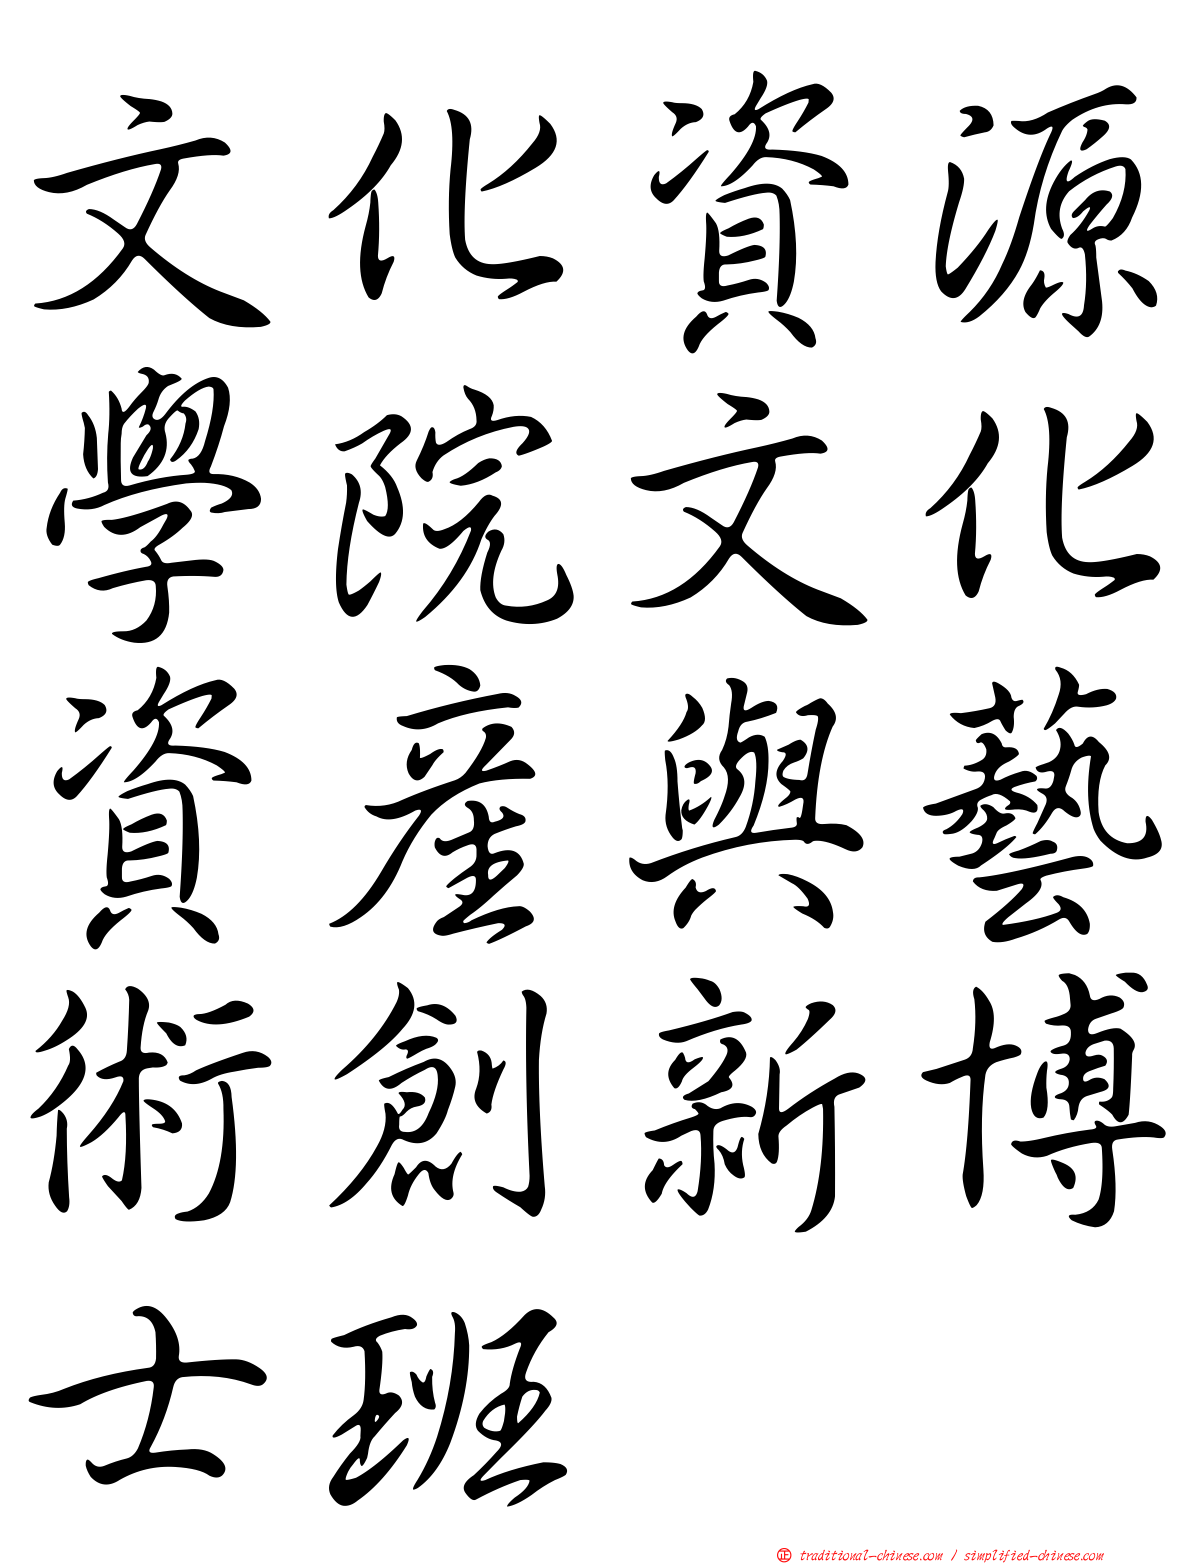 文化資源
學院文化
資産與藝
術創新博
士班
正 traditional-chinese.com / simplified-chinese.com